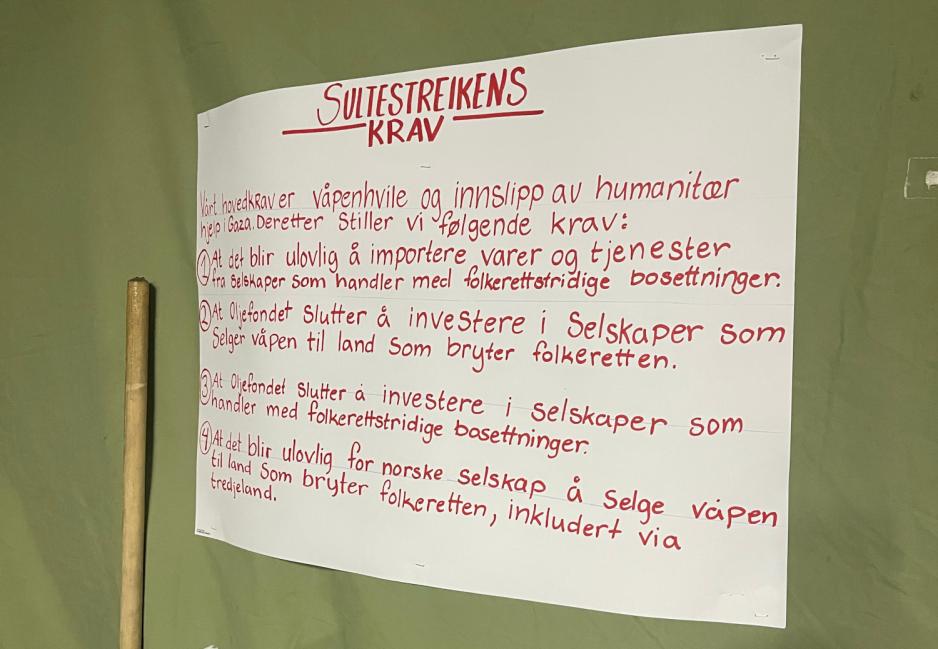 SULTESTREIKENS
KRAV
Vårt hovedkrav er våpenhvile og innslipp av humanitær
hjelp i Gaza. Deretter stiller vi følgende krav:
① At det blir ulovlig å importere varer og tjenester
fra selskaper som handler med folkerettstridige bosettninger.
② At Oljefondet slutter å investere i selskaper som
selger våpen til land som bryter folkeretten.
③ At Oljefondet slutter å investere i selskaper som
handler med folkerettstridige bosettninger.
④ At det blir ulovlig for norske selskap å selge våpen
til land som bryter folkeretten, inkludert via
tredjeland.